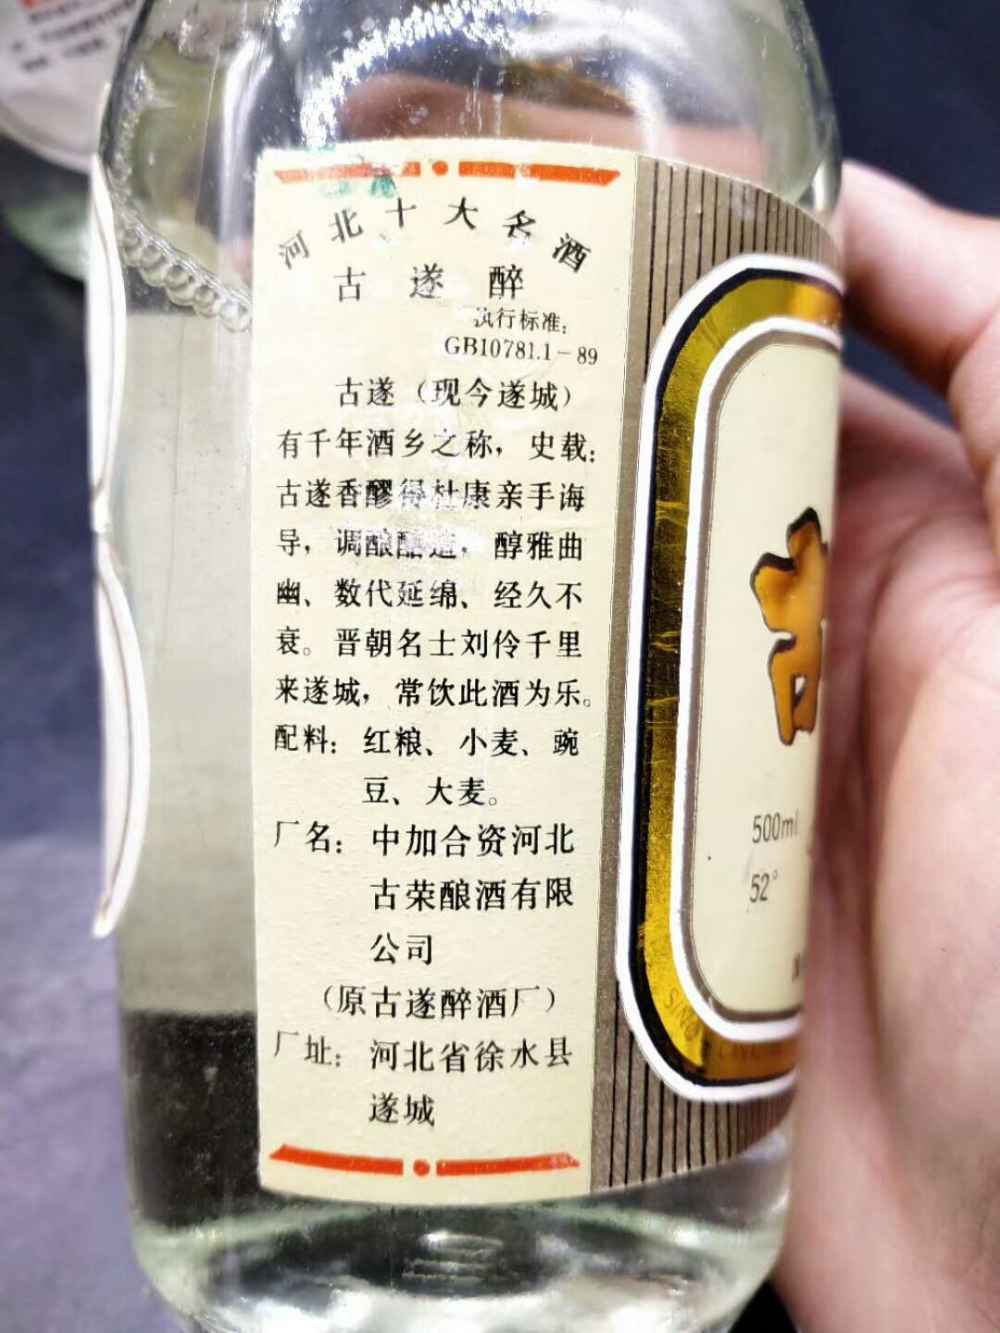 河北十大名酒
古遂醉
执行标准：
GB10781.1－89
古遂（现今遂城）
有千年酒乡之称，史载：
古遂香醪得杜康亲手海
导，调酿酷造，醇雅曲
幽、数代延绵、经久不
衰。晋朝名士刘伶千里
来遂城，常饮此酒为乐。
配料：红粮、小麦、豌
豆、大麦。
厂名：中加合资河北
古荣酿酒有限
公司
（原古遂醉酒厂）
厂址：河北省徐水县
遂城
500ml
52°